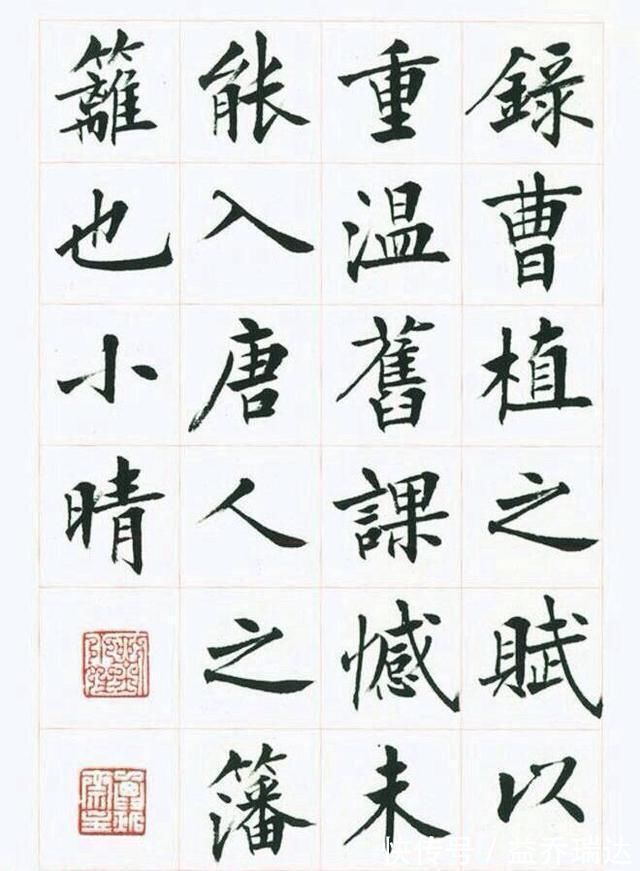 錄曹植之賦以
重温舊課憾未
能入唐人之籓
籬也小晴
快传号/益乔瑞达